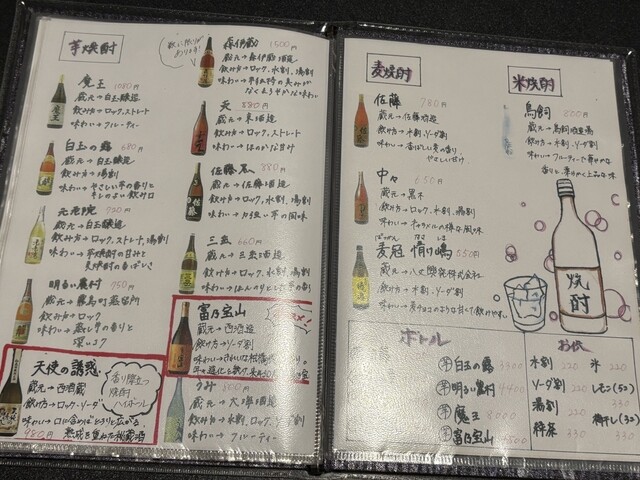 芋焼酎
魔王 1080円
蔵元→白玉醸造
飲み方→ロック、ストレート
味わい→フルーティー
白玉の露 680円
蔵元→白玉醸造
飲み方→湯割
味わい→やさしい芋の香りと
元老院 930円
飲み方→ロック、ストレート、湯割
味わい→芋焼酎の甘みと
麦焼酎の香ばしさ
明るい農村 750円
蔵元→霧島町蒸留所
飲み方→ロック
味わい→蒸し芋の香りと
深いコク
天使の誘惑
蔵元→西酒造
飲み方→ロック・ソーダ
味わい→口に含めばとろりと広がる
980円
香り際立つ
焼酎
ハイボール
数に限りが
あります!
森伊蔵 1500円
蔵元→森伊蔵酒造
飲み方→ロック、水割、湯割
天 880円
飲み方→ロック、ストレート
味わい→ほのかな甘み
佐藤黒 880円
蔵元→佐藤酒造
飲み方→ロック、水割、湯割
味わい→力強い芋の風味
三岳 660円
蔵元→三岳酒造
飲み方→ロック、水割、湯割
味わい→ほんのりとした芋の香
富乃宝山
蔵元→西酒造
飲み方→ソーダ割
味わい→きれいな柑橘
蔵元→大海酒造
飲み方→水割、ロック、湯割
味わい→フルーティー
麦焼酎
佐藤 780円
蔵元→佐藤酒造
飲み方→水割、ソーダ割
味わい→香ばしい麦の香り、
やさしいコク
中々 650円
蔵元→黒木
飲み方→ロック、水割、湯割
麦冠 情け嶋 550円
蔵元→八丈興発株式会社
飲み方→水割・ソーダ割
米焼酎
鳥飼 800円
蔵元→鳥飼酒造場
飲み方→水割、ソーダ割
味わい→フルーティーで華やかな
香りと、素やかで上品な味
焼酎
ボトル
芋 白玉の露 3300
芋 明るい農村 4400
芋 魔王 8000
芋 富乃宝山
お供
水割 220
ソーダ割 220
湯割 220
緑茶 330
氷 220
レモン(5コ) 330
梅干し(3コ) 330